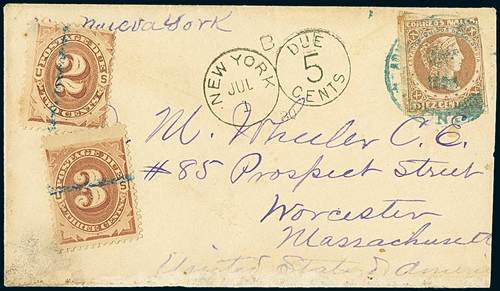 Nueva York
POSTAGE DUE
2
CTS
POSTAGE DUE
3
THREE CENTS
NEW YORK
JUL
1
B
DUE
5
CENTS
CORREOS NAL
DIEZ CENT
M. Wheeler C. E.
#85 Prospect Street
Worcester
Massachusett
United States of America